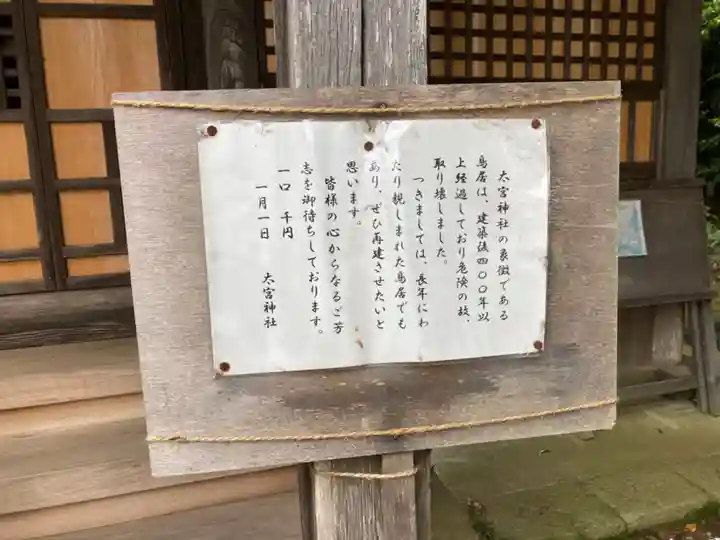 太宮神社の象徴である
鳥居は、建築後四〇〇年以
上経過しており危険の故、
取り壊しました。
つきましては、長年にわ
たり親しまれた鳥居でも
あり、ぜひ再建させたいと
思います。
皆様の心からなるご芳
志を御待ちしております。
一口 千円
一月一日 太宮神社